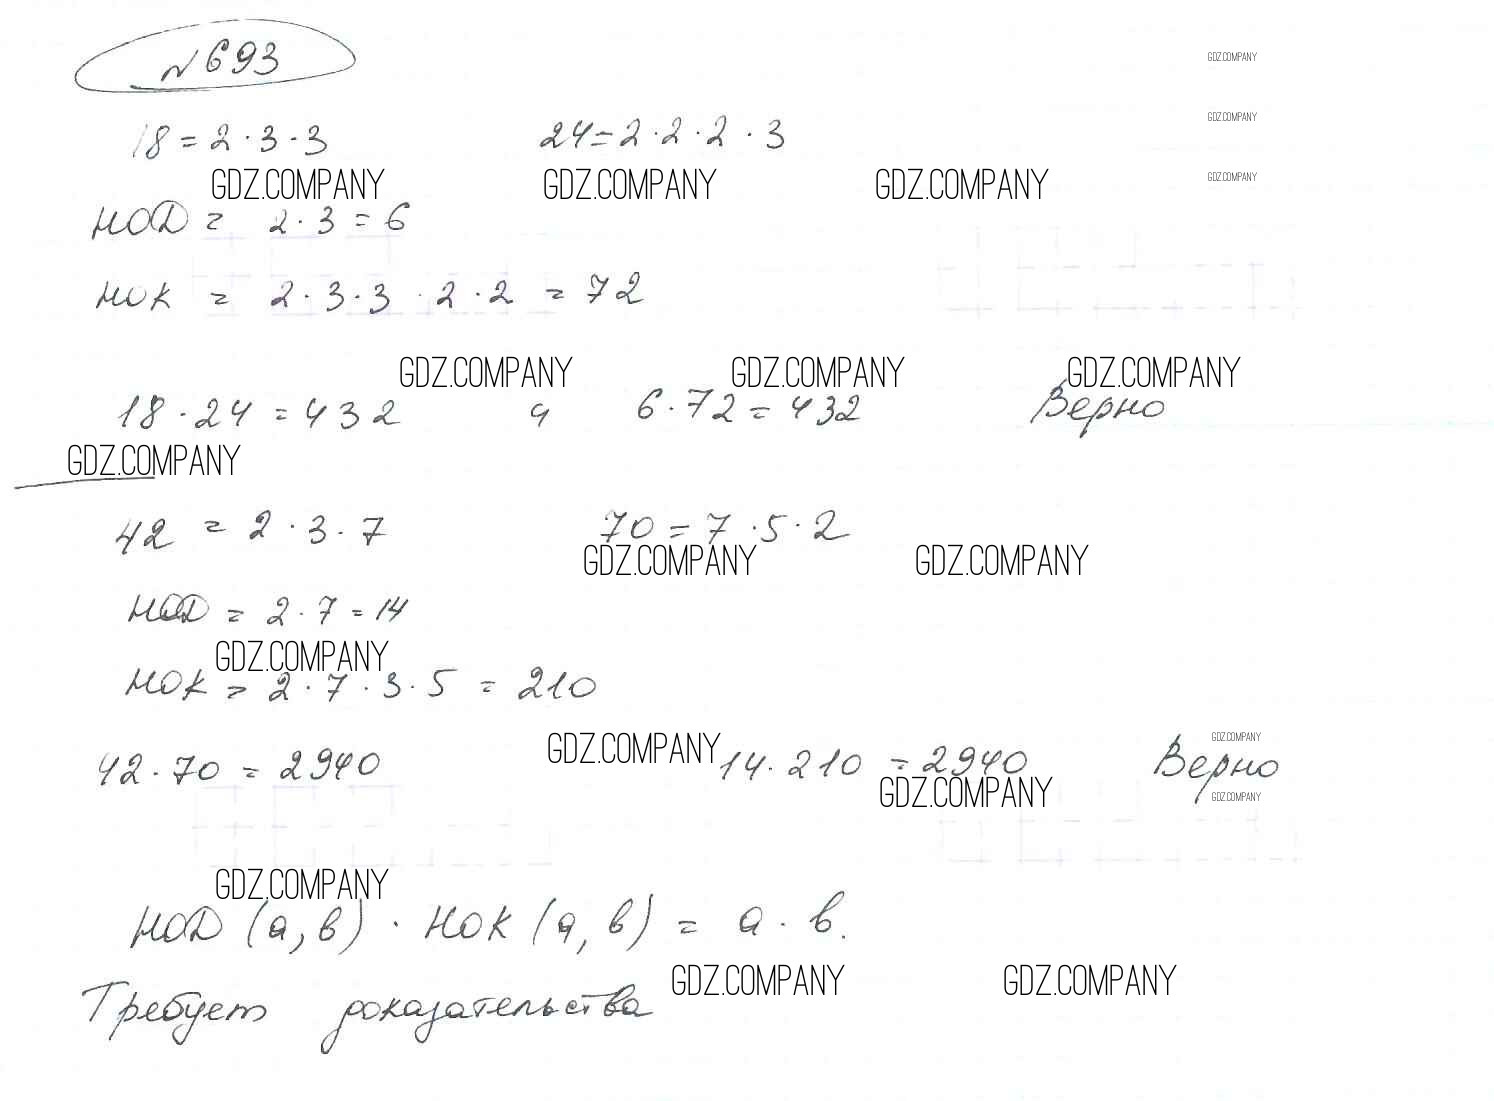 №693
GDZ.COMPANY
GDZ.COMPANY
18 = 2 · 3 · 3 24 = 2 · 2 · 2 · 3
GDZ.COMPANY GDZ.COMPANY GDZ.COMPANY GDZ.COMPANY
НОД = 2 · 3 = 6
НОК = 2 · 3 · 3 · 2 · 2 = 72
GDZ.COMPANY GDZ.COMPANY GDZ.COMPANY
18 · 24 = 432 6 · 72 = 432 Верно
GDZ.COMPANY
42 = 2 · 3 · 7 70 = 7 · 5 · 2
GDZ.COMPANY GDZ.COMPANY
НОД = 2 · 7 = 14
GDZ.COMPANY
НОК = 2 · 7 · 3 · 5 = 210
GDZ.COMPANY GDZ.COMPANY
42 · 70 = 2940 14 · 210 = 2940 Верно
GDZ.COMPANY GDZ.COMPANY
GDZ.COMPANY
НОД (а, в) · НОК (а, в) = а · в.
GDZ.COMPANY GDZ.COMPANY
Требует доказательства